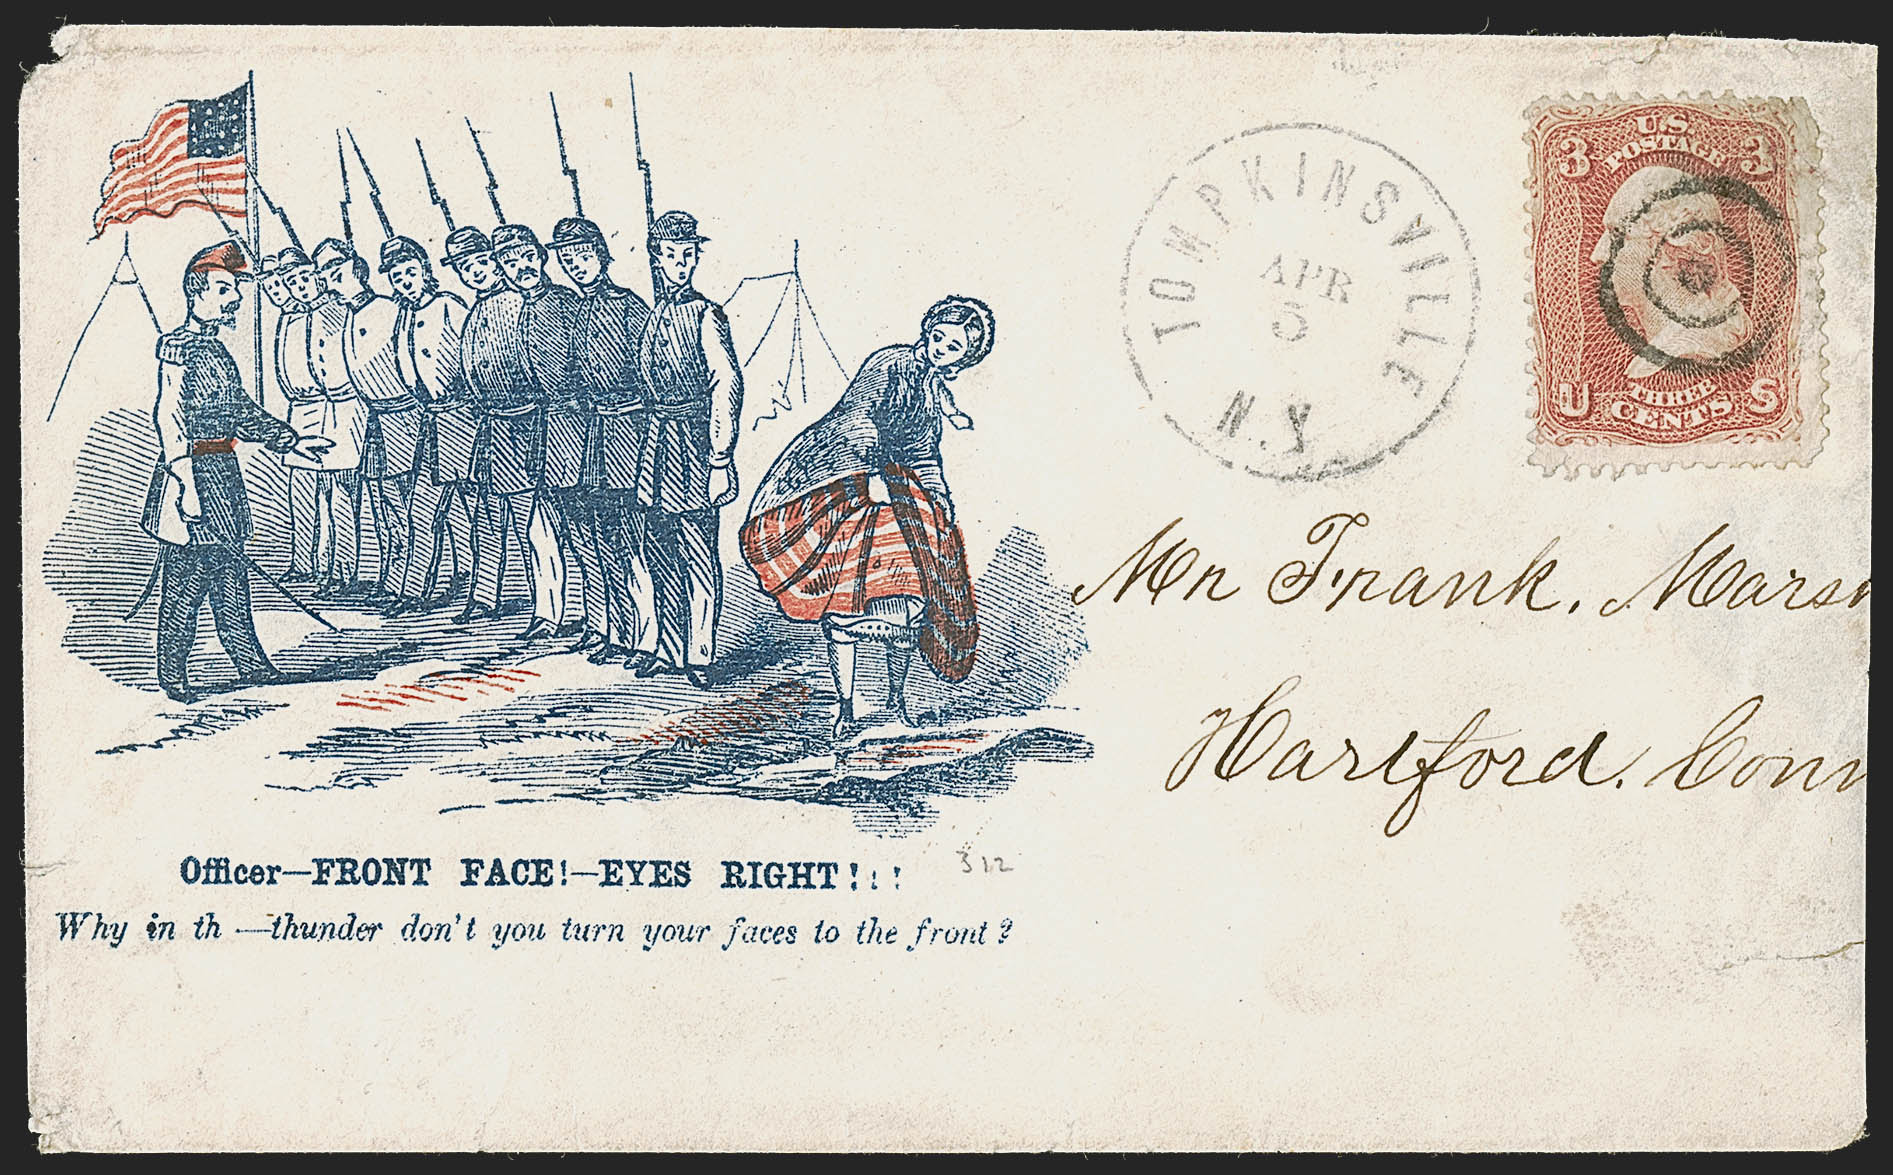 TOMPKINSVILLE
APR
5
N.Y.
3 U.S. 3
POSTAGE
U THREE S
CENTS
Mr Frank. Marsh
Hartford. Conn
Officer—FRONT FACE!—EYES RIGHT!!!
312
Why in th —thunder don't you turn your faces to the front?